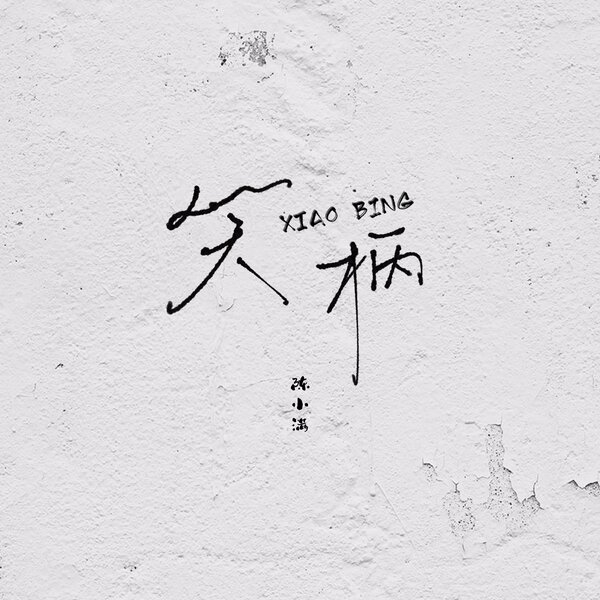 笑柄
XIAO BING
陈小满